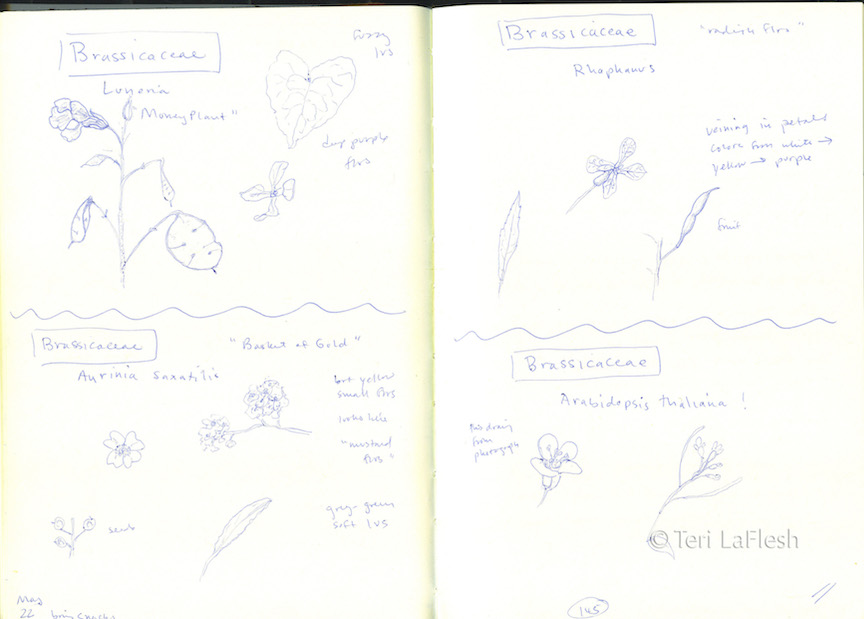 Brassicaceae
Lunaria
"Money Plant"
fuzzy
lvs
deep purple
flrs
Brassicaceae
"Basket of Gold"
Aurinia saxatilis
but yellow
small flrs
looks like
"mustard
flrs"
seeds
grey-green
soft lvs
May
22
Brassicaceae
"radish flrs"
Rhaphanus
veining in petals
colors from white →
yellow → purple
fruit
Brassicaceae
Arabidopsis thaliana !
this drawing
from
photograph
© Teri LaFlesh
145